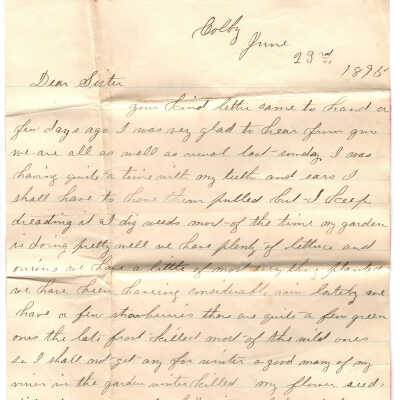 Colby
June
23rd
1895
Dear Sister
your kind lettr came to hand a
few days ago I was very glad to hear from you
we are all as well as usual last sunday I was
having quite a time with my teeth and ears I
shall have to have them pulled but I keep
dreading it I dig weeds most of the time my garden
is doing pretty well we have plenty of lettuce and
onions we have a little of most every thing planted
we have been having considerable rain lately we
have a few strawberries there are quite a few green
ones the late frost killed most of the wild ones
so I shall not get any for winter a good many of my
vines in the garden winter killed my flower seed